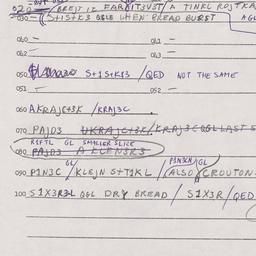 020 / BREJT IZ FARXIT3V3T / A TINKL ROJTKA
030 - S+IS+K3 OGLE WHEN BREAD BURST AGL
040 - 041 -
042 - 043 -
050 S+IS+K13 / QED NOT THE SAME
051 - 052 -
060 AKRAJC+3K / KRAJ3C
070 PAJ03 UKRAJC+3K / KRAJ3C OGL LAST S
R1FTL GL SMALLER SLICE
080 PAJ03 A KLENSR3
GL P1N3CH / GL
090 P1N3C / KLEJN S+T1KL / (ALSO CROUTON
100 S1X3R3L OGL DRY BREAD / S1X3R / QED